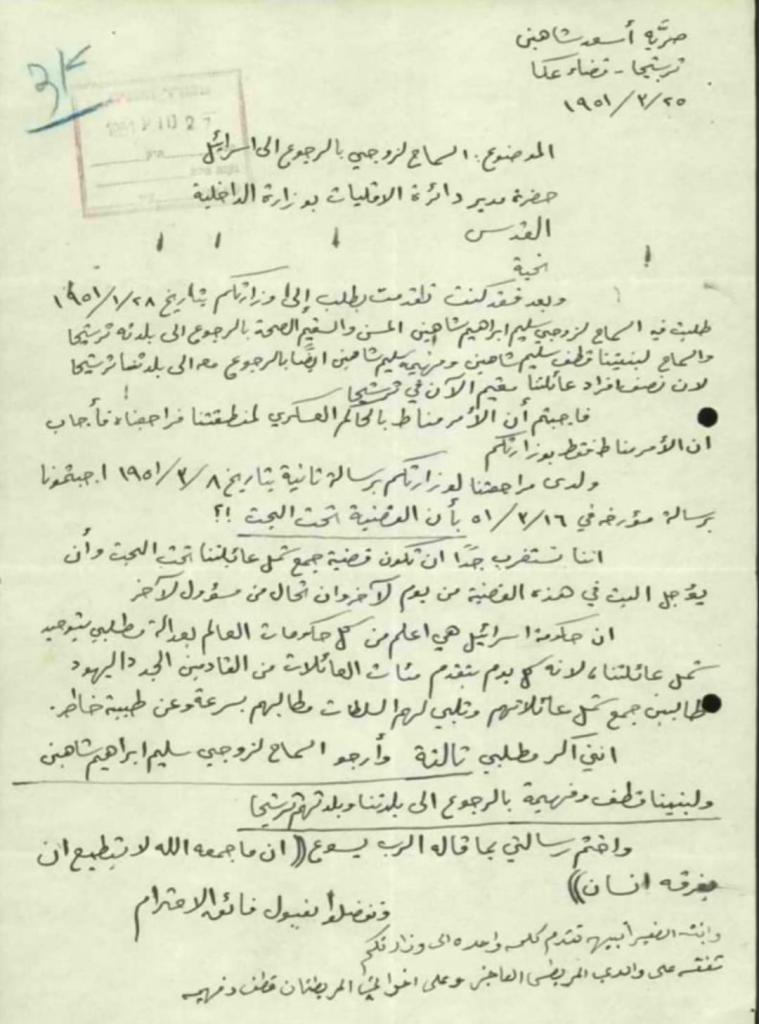 حربّه أسعد شاهين
ترشيحا - قضاء عكا
١٩٥١/٣/٢٥
الموضوع: السماح لزوجي بالرجوع الى اسرائيل
حضرة مدير دائرة الاقليات بوزارة الداخلية
القدس
تحية
وبعد فقد كنت تقدمت بطلب إلى وزارتكم بتاريخ ١٩٥١/١/٢٨
طلبت فيه السماح لزوجي سليم ابراهيم شاهين المسن والسقيم الصحة بالرجوع الى بلدته ترشيحا
والسماح لبنتينا قطف سليم شاهين وفهيمه سليم شاهين ايضًا بالرجوع معه الى بلدتهما ترشيحا
لان نصف افراد عائلتنا مقيم الآن في ترشيحا
فاجبتم أن الأمر مناط بالحاكم العسكري لمنطقتنا فراجعناه فأجاب
ان الأمر مناط فقط بوزارتكم
ولدى مراجعتنا لوزارتكم برسالة ثانية بتاريخ ١٩٥١/٣/٨ اجبتمونا
برسالة مؤرخه في ٥١/٣/١٦ بأن القضية تحت البحث !؟
اننا نستغرب جدًا ان تكون قضية جمع شمل عائلتنا تحت البحث وأن
يؤجل البت في هذه القضية من يوم لآخر وان تحال من مسؤول لآخر
ان حكومة اسرائيل هي اعلم من كل حكومات العالم بعدالة مطلبي بتوحيد
شمل عائلتنا، لانه كل يوم يتقدم مئات العائلات من القادمين الجدد اليهود
طالبين جمع شمل عائلاتهم وتلبي لهم السلطات مطالبهم بسرعة وعن طيبة خاطر.
انني اكرر مطلبي ثالثة وأرجو السماح لزوجي سليم ابراهيم شاهين
ولبنتينا قطف وفهيمة بالرجوع الى بلدتنا وبلدتهم ترشيحا
واختم رسالتي بما قاله الرب يسوع ((ان ما جمعه الله لا يستطيع ان
يفرقه انسان))
وتفضلوا بقبول فائق الاحترام
تقدم كلمه واحده الى وزارتكم
على والدي المريض العاجز وعلى المريضتان قطف وفهيمه